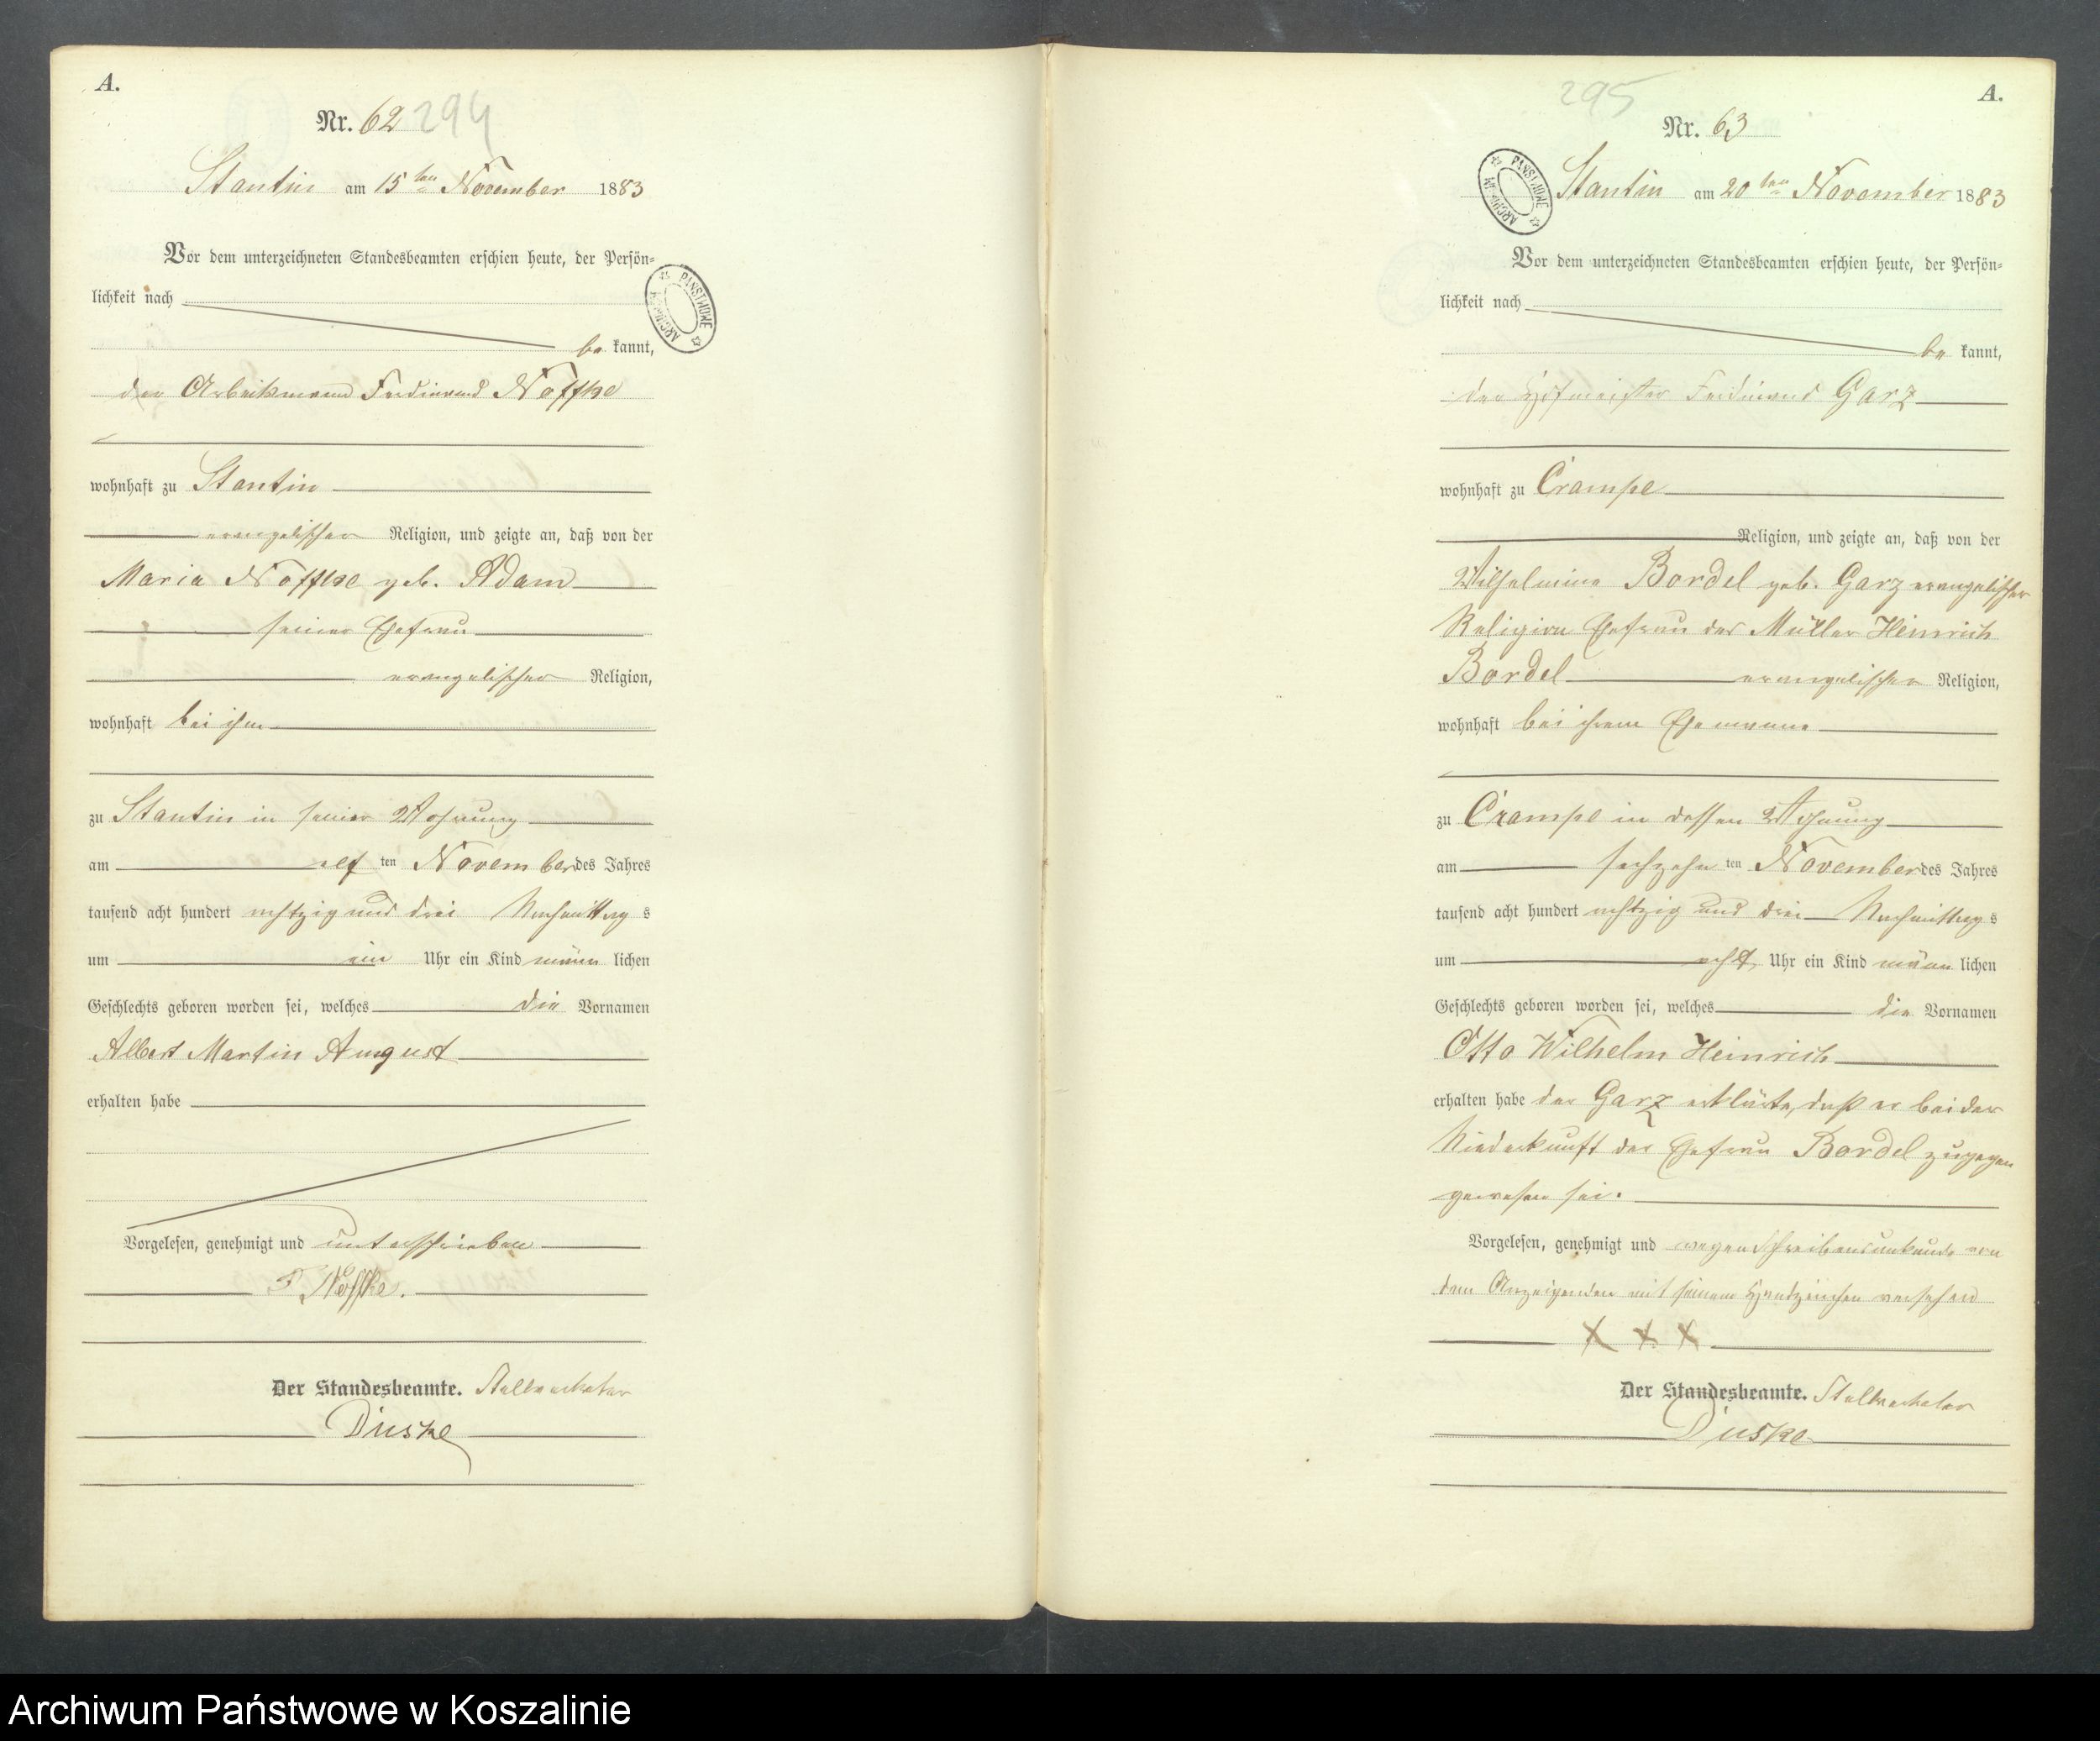 A.
Nr. 62 294
Stantin am 15 ten November 1883
Vor dem unterzeichneten Standesbeamten erschien heute, der Persön=
lichkeit nach
be kannt,
der Arbeitsmann Ferdinand Noffke
wohnhaft zu Stantin
evangelischer Religion, und zeigte an, daß von der
Maria Noffke geb. Adam
seiner Ehefrau
evangelischer Religion,
wohnhaft bei ihm
zu Stantin in seiner Wohnung
am elf ten November des Jahres
tausend acht hundert achtzig und drei Nachmittag s
um ein Uhr ein Kind männ lichen
Geschlechts geboren worden sei, welches die Vornamen
Albert Martin August
erhalten habe
Vorgelesen, genehmigt und unterschrieben
F. Noffke.
Der Standesbeamte. Stellvertreter
Duske
PAŃSTWOWE ARCHIWUM
295
A.
Nr. 63
Stantin am 20 ten November 1883
PAŃSTWOWE ARCHIWUM
Vor dem unterzeichneten Standesbeamten erschien heute, der Persön=
lichkeit nach
be kannt,
der Hofmeister Ferdinand Garz
wohnhaft zu Crampe
Religion, und zeigte an, daß von der
Wilhelmine Bordel geb. Garz evangelischer
Religion Ehefrau des Müller Heinrich
Bordel evangelischer Religion,
wohnhaft bei ihrem Ehemanne
zu Crampe in dessen Wohnung
am sechzehn ten November des Jahres
tausend acht hundert achtzig und drei Nachmittag s
um acht Uhr ein Kind männ lichen
Geschlechts geboren worden sei, welches die Vornamen
Otto Wilhelm Heinrich
erhalten habe der Garz erklärte, daß er bei der
Niederkunft der Ehefrau Bordel zugegen
gewesen sei.
Vorgelesen, genehmigt und wegen Schreibensunkunde von
dem Anzeigenden mit seinem Handzeichen versehen
X X X
Der Standesbeamte. Stellvertreter
Duske
Archiwum Państwowe w Koszalinie